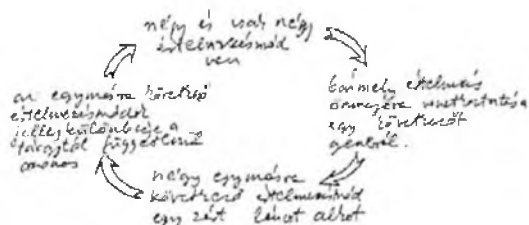 négy és csak négy
értelmezésmód
van
bármely értelmezés
önmagára vonatkoztatása
egy következőt
generál.
négy egymásra
következő értelmezésmód
egy zárt láncot alkot
az egymásra következő
értelmezésmódok
jellegkülönbsége a
tárgytól függetlenül
azonos